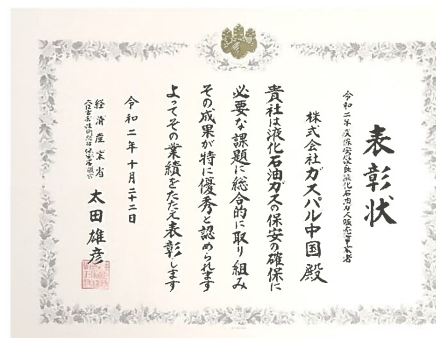 表彰状
令和二年度保安優良液化石油ガス販売事業者
株式会社ガスパル中国殿
貴社は液化石油ガスの保安の確保に
必要な課題に総合的に取り組み
その成果が特に優秀と認められます
よってその業績をたたえ表彰します
令和二年十月二十二日
経済産業省
大臣官房技術総括・保安審議官
太田雄彦